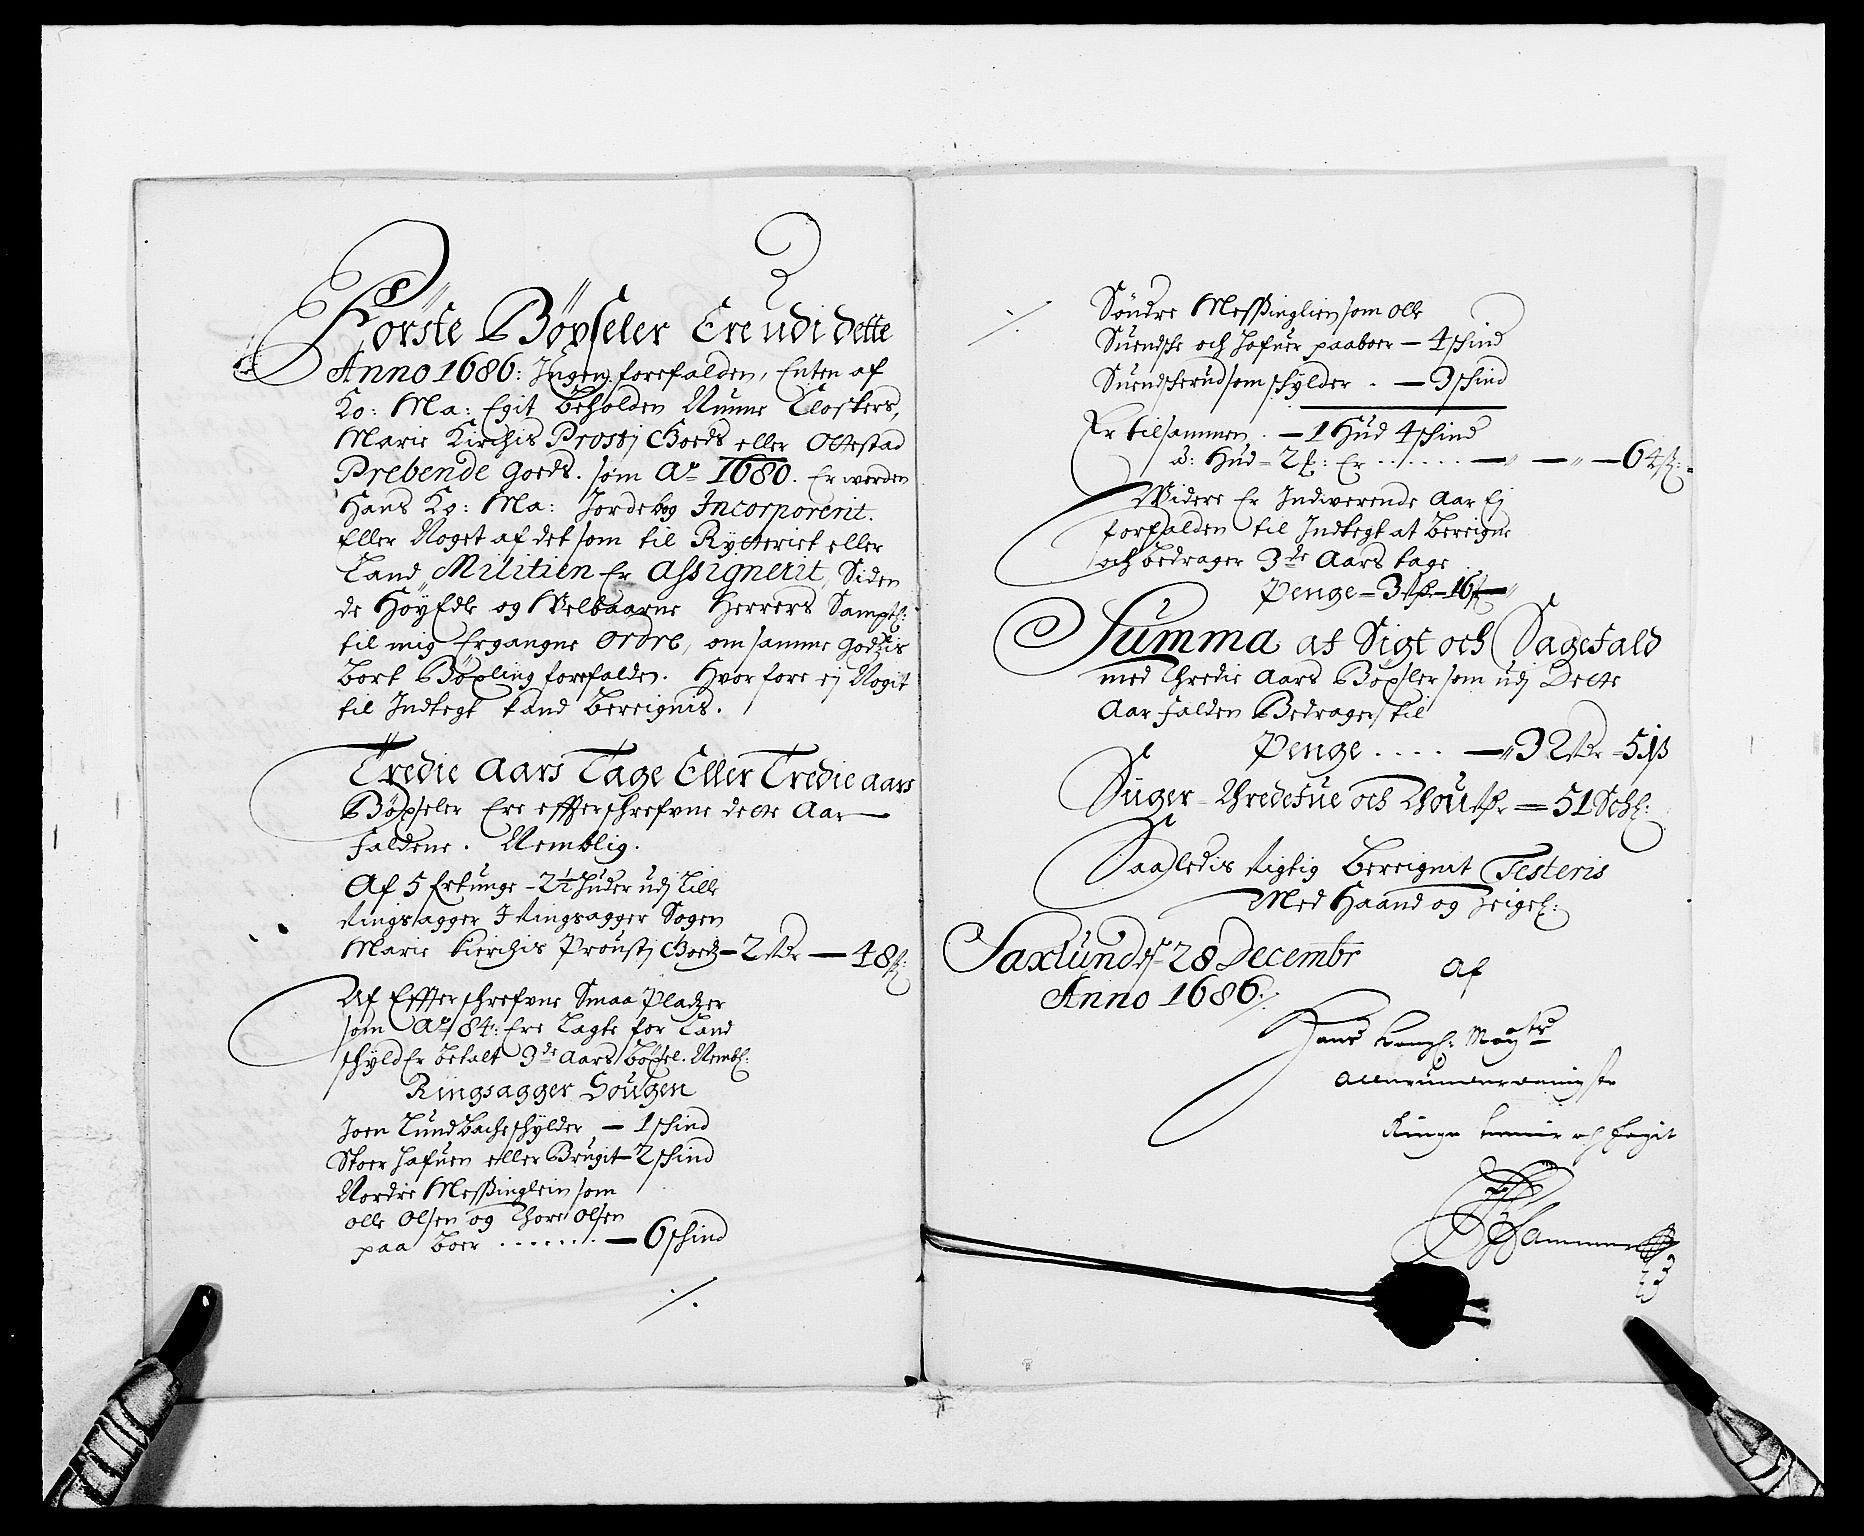 Förste Böxseler Ere udi dette
Anno 1686: Ingen forefalden, Enten af
Ko: Ma: Egit beholden Nunne Closters,
Marie Kirchis Prousti Goeds eller Ottestad
Prebende Goeds. som Ao 1680. Er worden
Hans Ko: Ma: Jordebog Incorporerit.
Eller Noget af det som til Rÿtteriet eller
Land Militien Er Assignerit, Siden
de HöyEdle og Welbaarne Herrers Samptl:
til mig Ergangne Ordre, om samme Godtzis
bort Böxling forefalden. Hvorfore ej Nogit
til Indtegt kand bereignis.
Tredie Aars Tage Eller Tredie aars
Böxseler Ere effterschrefvne dette Aar
Faldene. Nemblig.
Af 5 Ertunge - 2½ Huder udj Lille
Ringsagger I Ringsagger Sogen
Marie Kierchis Proustj Goeds - 2 Rdr — 48 s:
Af Effterschrefvne Smaa Pladtzer
som Ao 84: Ere Lagte for Land
schyld Er betalt 3de Aars böxsel. Nembl:
Ringsagger Sougen
Joen Lundbache schylder — 1 schind
Stoer Hafuen eller Brugit - 2 schind
Nordre Messinglien som
olle Olsen og Thore Olsen
paa boer . . . . . . . — 6 schind
./.
./. Söndre Messinglien som olle
Suendsche och Hafuer paaboer — 4 schind
Suendscherud som schylder . — 3 schind
Er tilsammen . — 1 Hud 4 schind
a: Hud - 2 : Er . . . . . . — " — " — 64 s:
Widere Er Indwerende Aar Ej
forfalden til Indtegt at bereigne
och bedrager 3de Aars tage
Penge — 3 Rdr — 16 s
Summa af Sigt och Sagefald
med Thredie Aars Böxsler som udj Dette
Aar falden Bedrager til
Penge . . . . — " 32 Rdr - 51 ß
Siiger - Thredefue och Thou Rdr — 51 Schl:
Saaledis Rigtig bereignit Testeris
Med Haand og Zeigel:
Saxlund d 28 Decembr
Anno 1686 ./.
Af
Hans Kongl: Mayts
allerunderdanigste
Ringe tienner och fogit